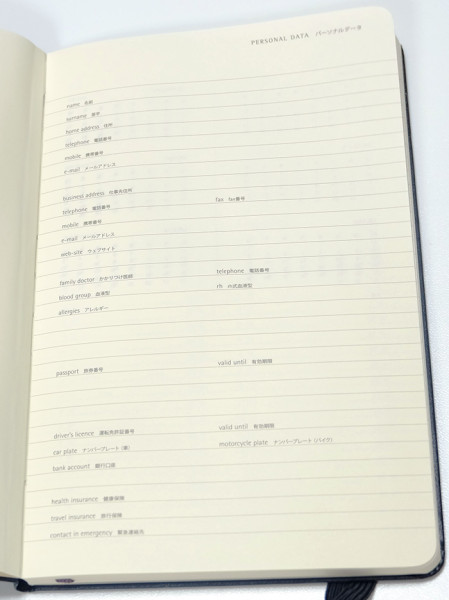 PERSONAL DATA パーソナルデータ
name 名前
surname 苗字
home address 住所
telephone 電話番号
mobile 携帯番号
e-mail メールアドレス
business address 仕事先住所
fax fax番号
telephone 電話番号
mobile 携帯番号
e-mail メールアドレス
web-site ウェブサイト
family doctor かかりつけ医師 telephone 電話番号
blood group 血液型 rh rh式血液型
allergies アレルギー
passport 旅券番号 valid until 有効期限
driver's licence 運転免許証番号 valid until 有効期限
car plate ナンバープレート (車) motorcycle plate ナンバープレート (バイク)
bank account 銀行口座
health insurance 健康保険
travel insurance 旅行保険
contact in emergency 緊急連絡先